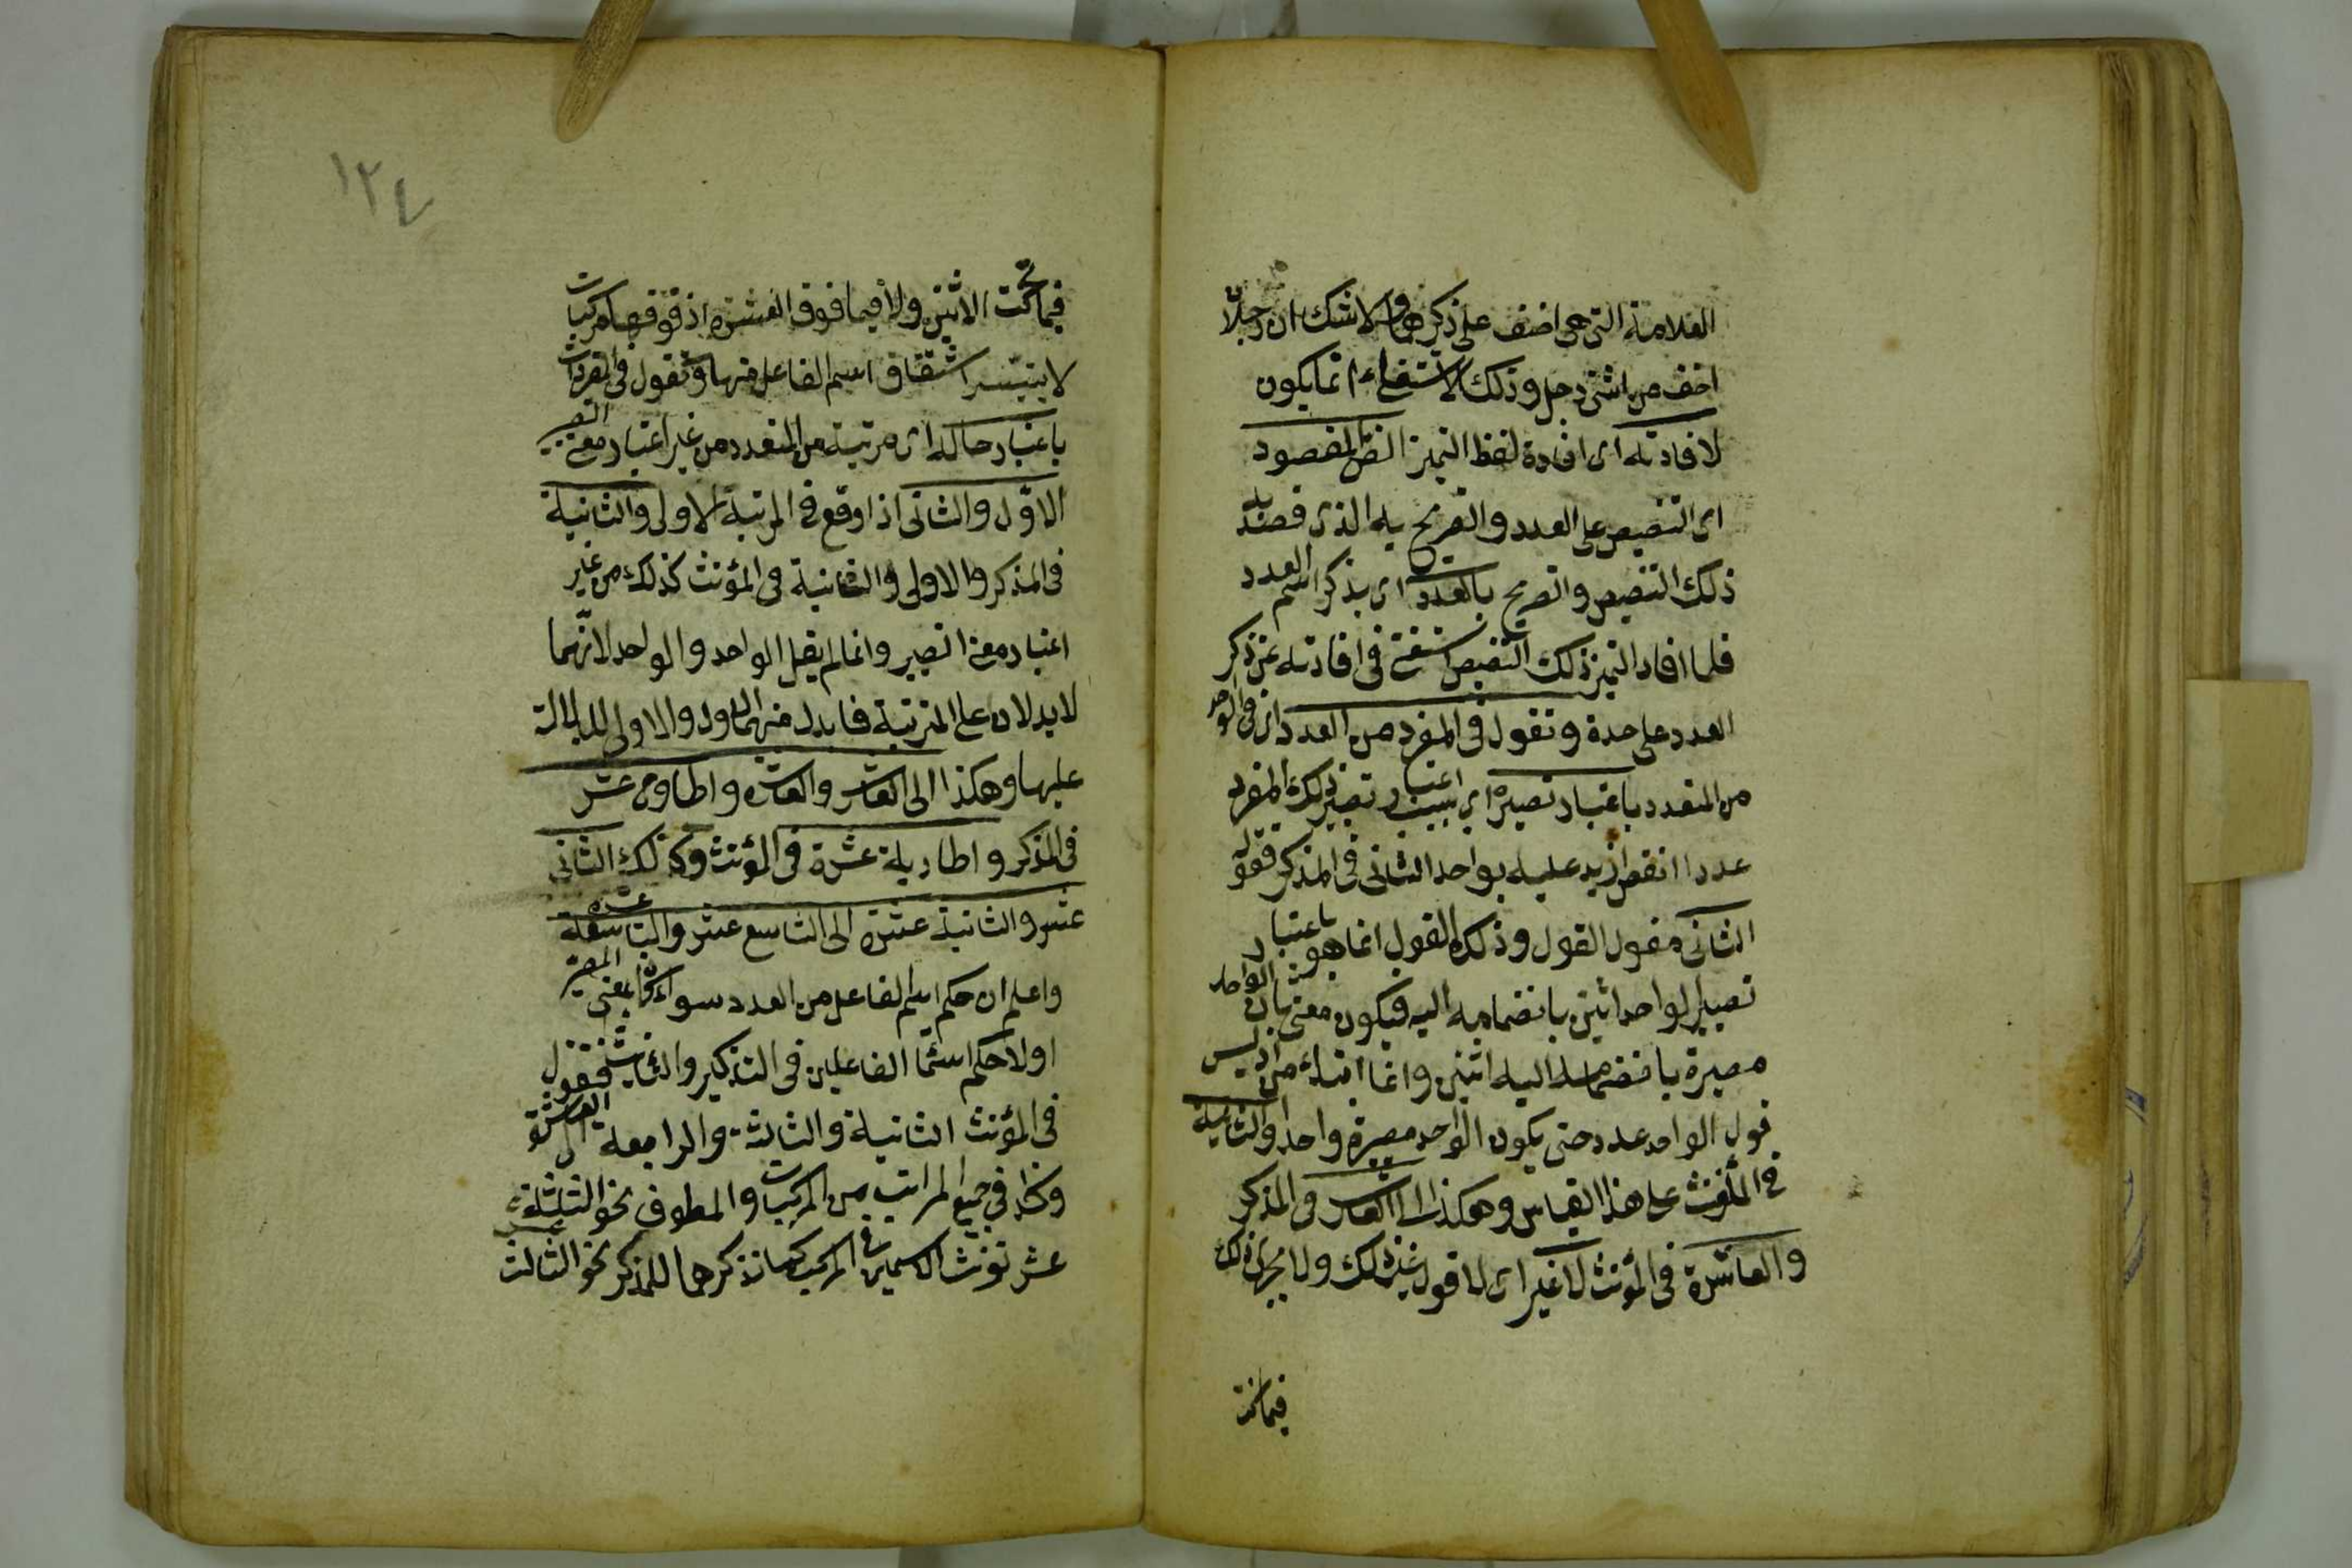 العلامة التى هى اخف على ذكرهما ولا شك ان رجلا
اخف من اثنى رجل وذلك الاستغناء انما يكون
لافادته اى افادة لفظ التميز النص المقصود
اى التنصيص على العدد والتصريح به الذى قصد به
ذلك التنصيص والتصريح بالعدد اى بذكر اسم العدد
فلما افاد التميز ذلك التنصيص استغنى فى افادته عن ذكر
العدد على حدة وتقول فى المفرد من العدد اى فى الواحد
من المتعدد باعتبار تصييره اى بسبب اعتبار تصيير ذلك المفرد
عددا انقص ازيد عليه بواحد الثانى فى المذكر فقوله
الثانى مقول القول وذلك القول انما هو باعتبار
تصيير الواحد اثنين بانضمامه اليه فيكون معنى ثان الواحد
مصيرة بانضمامه اليه اثنين وانما ابتداء من اذ ليس
قول الواحد عدد حتى يكون الواحد مصيرة واحدا والثانية
فى المؤنث على هذا القياس وهكذا الى العاشر فى المذكر
والعاشرة فى المؤنث لا غير اى لا قول غير ذلك ولا يجرى ذلك
فيما تحت
١٢٤
فيما تحت الاثنين ولا فيما فوق العشرة اذ فوقها مركبات
لا يتيسر اشتقاق اسم الفاعل منها وتقول فى المفردات
باعتبار حاله اى مرتبته من المتعدد من غير اعتبار معنى التصيير
الاول والثانى اذا وقع فى المرتبة الاولى والثانية
فى المذكر والاولى والثانية فى المؤنث كذلك من غير
اعتبار معنى التصيير وانما لم يقل الواحد والواحد لانهما
لا يدلان على المرتبة فابدل منهما الاول والاولى للدلالة
عليها وهكذا الى العاشر والعاشرة والحادى عشر
فى المذكر والحادية عشرة فى المؤنث وكذلك الثانى
عشر والثانية عشرة الى التاسع عشر والتاسعة عشرة
واعلم ان حكم اسم الفاعل من العدد سواء كان بمعنى المصير
اولا حكم اسماء الفاعلين فى التذكير والتانيث فتقول
فى المؤنث الثانية والثالثة والرابعة الى العشرة
وكذا فى جميع المراتب من المركبات والمعطوف نحو الثالثة
عشر تونث الاسمين فى المركب كما تذكرهما للمذكر نحو الثالث